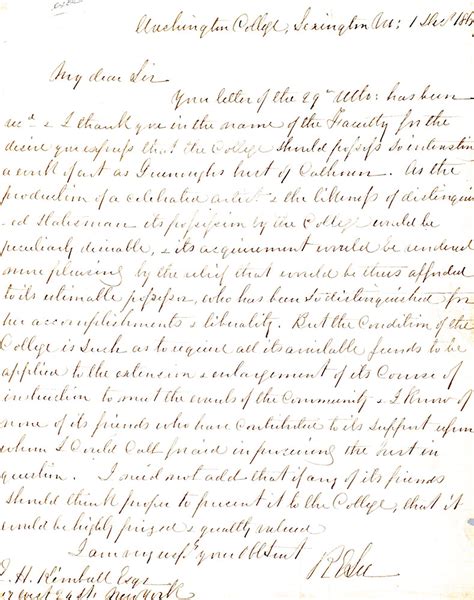 Washington College, Lexington Va: 1 Dec 186
My dear Sir
Your letter of the 29th Ulto: has been
recd & I thank you in the name of the Faculty for the
desire you express that the College should possess so interesting
a work of art as Greenough's bust of Calhoun. As the
production of a celebrated artist & the likeness of a distinguish
ed Statesman its possession by the College would be
peculiarly desirable, & its acquirement would be rendered
more pleasing by the relief that would be thus afforded
to its estimable possessor, who has been so distinguished for
her accomplishments & liberality. But the Condition of the
College is such as to require all its available funds to be
applied to the extension & enlargement of its Course of
instruction to meet the wants of the Community & I know of
none of its friends who have contributed to its support upon
whom I could call for aid in procuring the bust in
question. I need not add that if any of its friends
should think proper to present it to the College, that it
would be highly prized & greatly valued
I am very resp. your Obt Servt
R E Lee
H. Kimball Esqr
West 24th New York